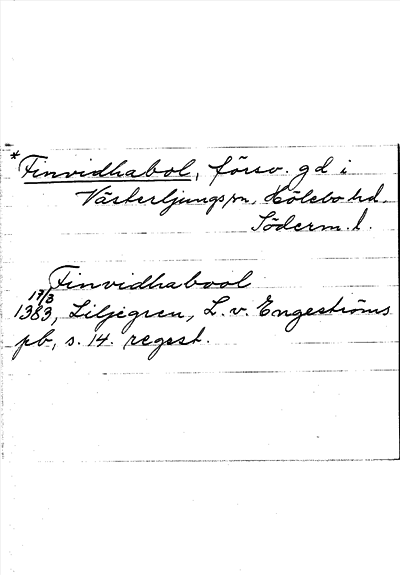 *Finvidhabol, försv. gd i
Västerljungs sn, Hölebo hd.
Söderm. l.
Finvidhabool
17/3
1383, Liljegren, L. v. Engeströms
pb, s. 14. regest.